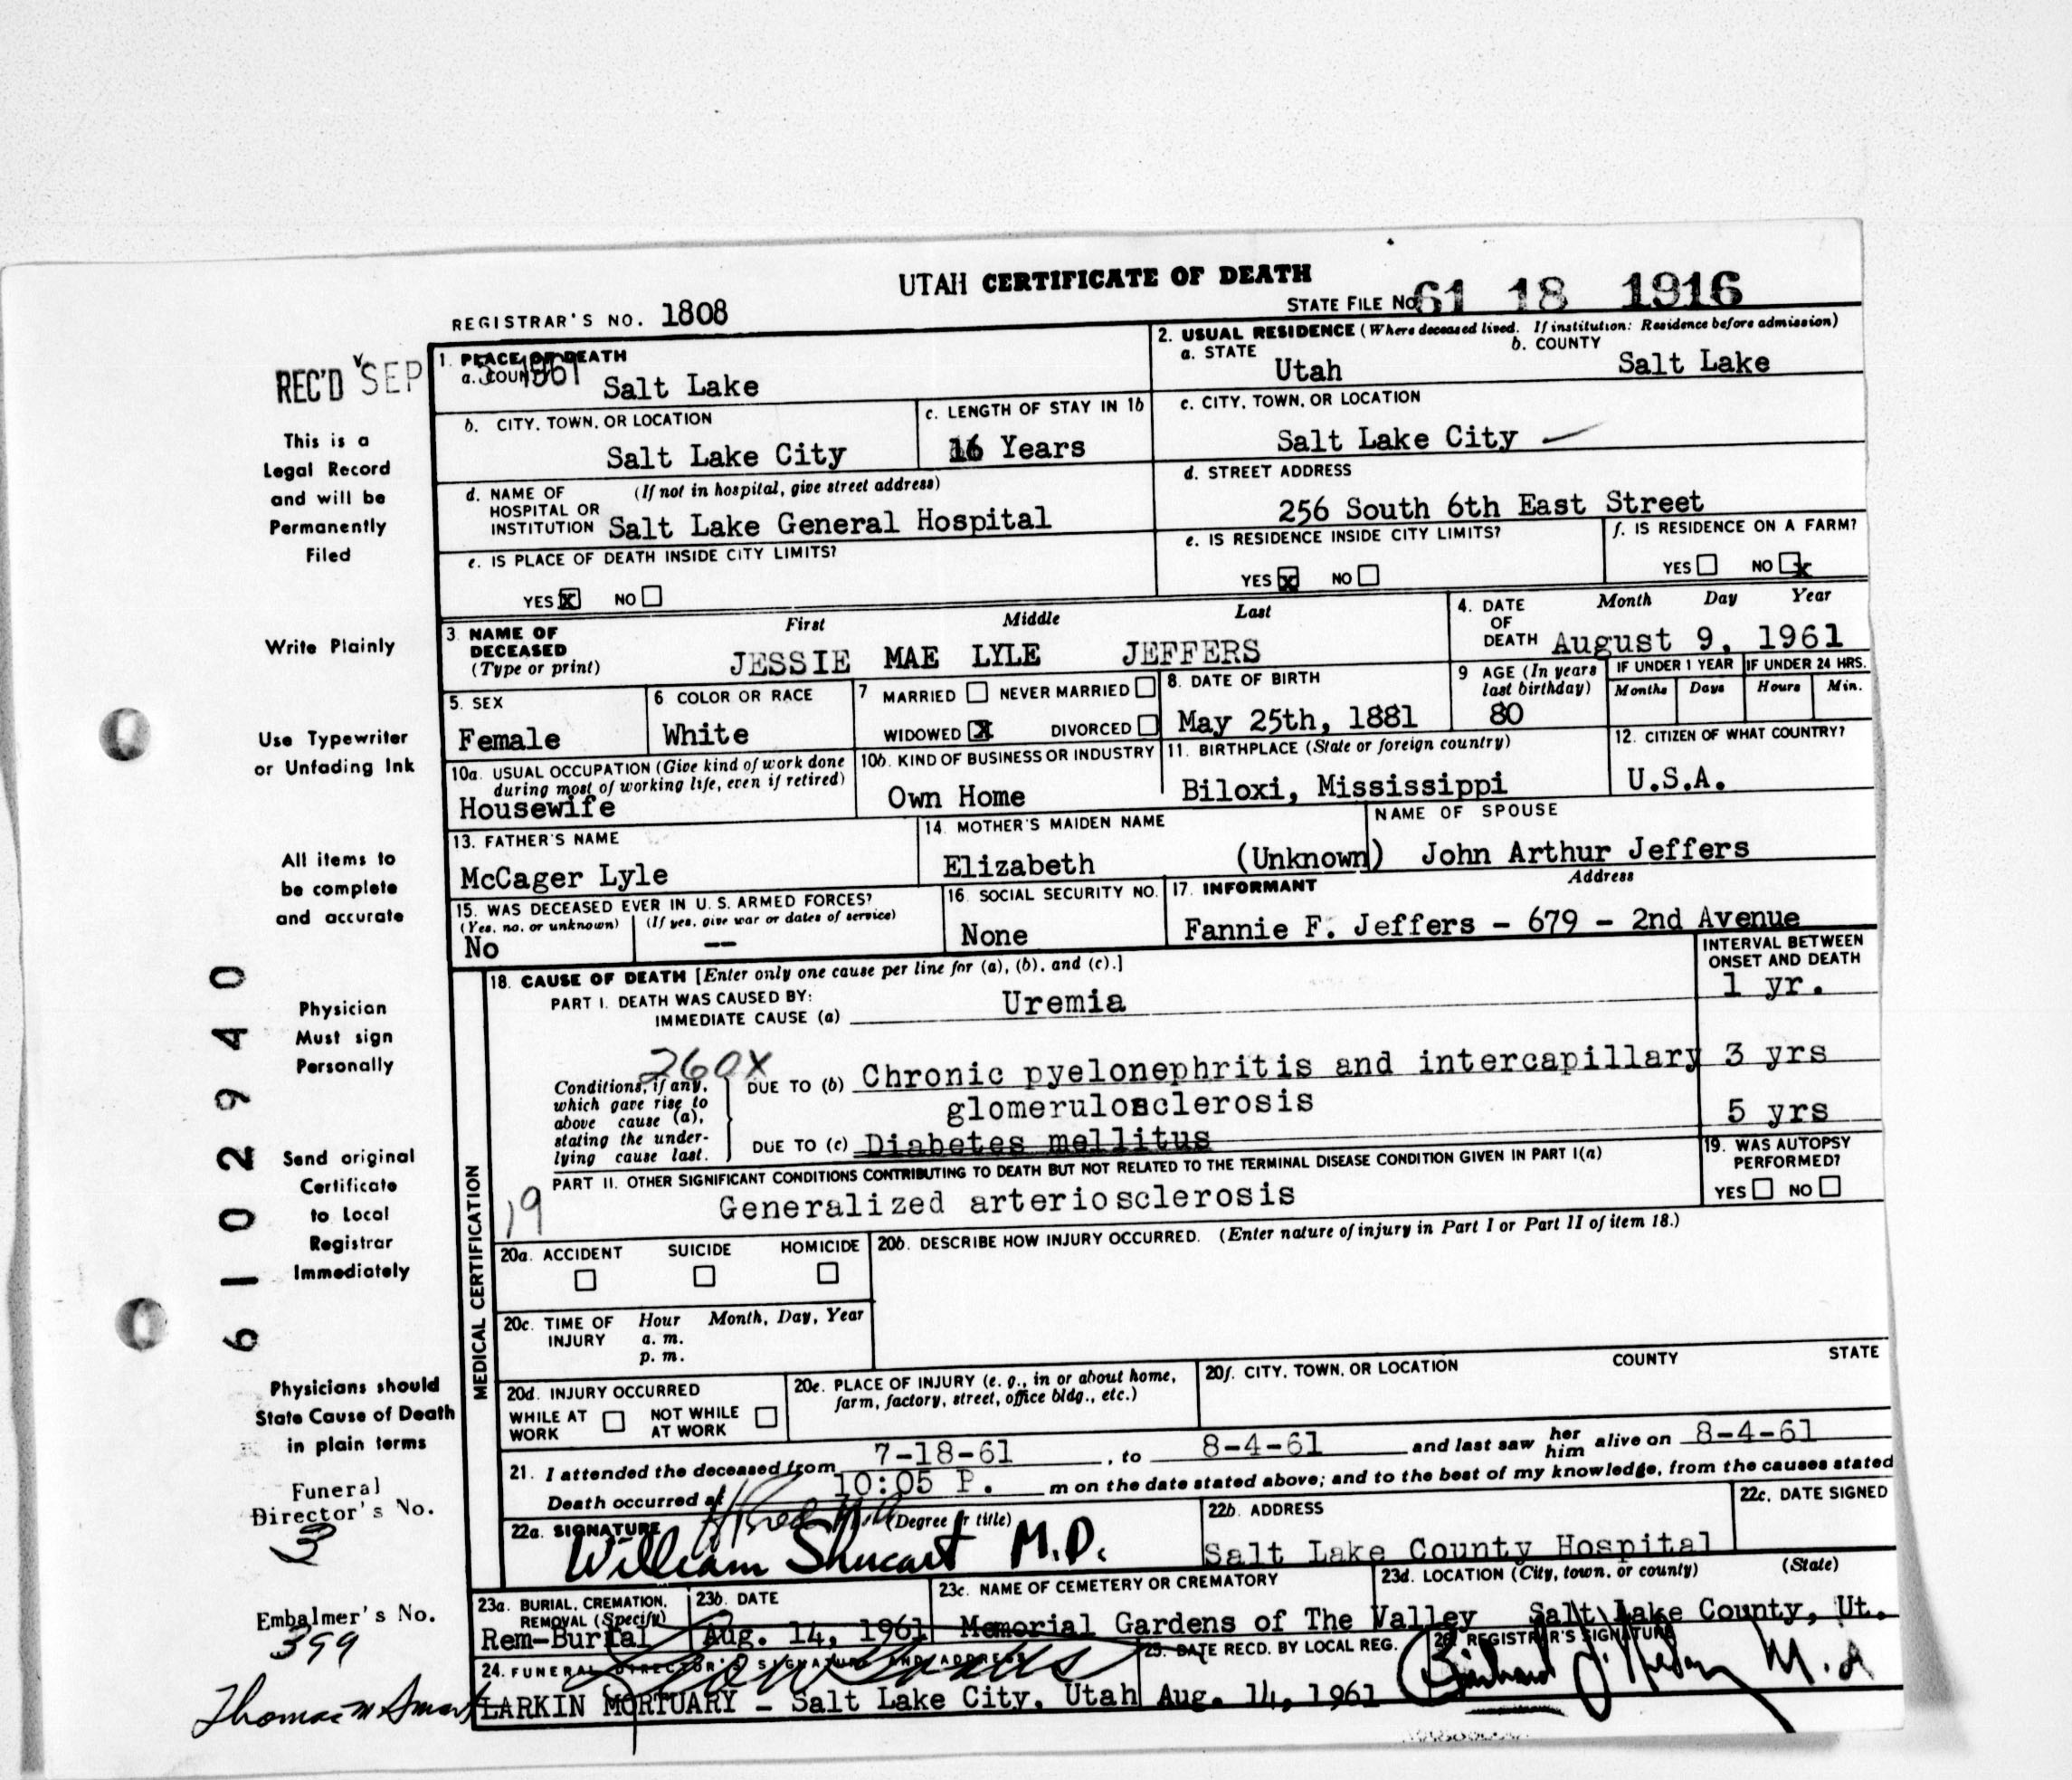 UTAH CERTIFICATE OF DEATH
REGISTRAR'S NO. 1808
STATE FILE NO. 61 18 1916
REC'D SEP 1961
This is a
Legal Record
and will be
Permanently
Filed
Write Plainly
Use Typewriter
or Unfading Ink
All items to
be complete
and accurate
Physician
Must sign
Personally
Send original
Certificate
to Local
Registrar
Immediately
Physicians should
State Cause of Death
in plain terms
Funeral
Director's No.
3
Embalmer's No.
399
61 02940
1. PLACE OF DEATH
a. COUNTY Salt Lake
2. USUAL RESIDENCE (Where deceased lived. If institution: Residence before admission)
a. STATE Utah
b. COUNTY Salt Lake
b. CITY, TOWN, OR LOCATION
Salt Lake City
c. LENGTH OF STAY IN 1b
16 Years
c. CITY, TOWN, OR LOCATION
Salt Lake City
d. NAME OF HOSPITAL OR INSTITUTION (If not in hospital, give street address)
Salt Lake General Hospital
d. STREET ADDRESS
256 South 6th East Street
e. IS PLACE OF DEATH INSIDE CITY LIMITS?
YES X NO
e. IS RESIDENCE INSIDE CITY LIMITS?
YES X NO
f. IS RESIDENCE ON A FARM?
YES NO X
3. NAME OF DECEASED (Type or print)
First Middle Last
JESSIE MAE LYLE JEFFERS
4. DATE OF DEATH Month Day Year
August 9, 1961
5. SEX
Female
6 COLOR OR RACE
White
7 MARRIED NEVER MARRIED
WIDOWED X DIVORCED
8. DATE OF BIRTH
May 25th, 1881
9 AGE (In years last birthday)
80
IF UNDER 1 YEAR
Months Days
IF UNDER 24 HRS.
Hours Min.
10a. USUAL OCCUPATION (Give kind of work done during most of working life, even if retired)
Housewife
10b. KIND OF BUSINESS OR INDUSTRY
Own Home
11. BIRTHPLACE (State or foreign country)
Biloxi, Mississippi
12. CITIZEN OF WHAT COUNTRY?
U.S.A.
13. FATHER'S NAME
McCager Lyle
14. MOTHER'S MAIDEN NAME
Elizabeth (Unknown)
NAME OF SPOUSE
John Arthur Jeffers
15. WAS DECEASED EVER IN U. S. ARMED FORCES?
(Yes, no, or unknown) (If yes, give war or dates of service)
No --
16. SOCIAL SECURITY NO.
None
17. INFORMANT Address
Fannie F. Jeffers - 679 - 2nd Avenue
MEDICAL CERTIFICATION
18. CAUSE OF DEATH [Enter only one cause per line for (a), (b), and (c).]
INTERVAL BETWEEN ONSET AND DEATH
PART I. DEATH WAS CAUSED BY:
IMMEDIATE CAUSE (a) Uremia 1 yr.
260X
Conditions, if any, which gave rise to above cause (a), stating the underlying cause last.
DUE TO (b) Chronic pyelonephritis and intercapillary 3 yrs
glomerulosclerosis
DUE TO (c) Diabetes mellitus 5 yrs
PART II. OTHER SIGNIFICANT CONDITIONS CONTRIBUTING TO DEATH BUT NOT RELATED TO THE TERMINAL DISEASE CONDITION GIVEN IN PART I(a)
19 Generalized arteriosclerosis
19. WAS AUTOPSY PERFORMED?
YES NO
20a. ACCIDENT SUICIDE HOMICIDE
20b. DESCRIBE HOW INJURY OCCURRED. (Enter nature of injury in Part I or Part II of item 18.)
20c. TIME OF INJURY Hour a. m. p. m. Month, Day, Year
20d. INJURY OCCURRED
WHILE AT WORK NOT WHILE AT WORK
20e. PLACE OF INJURY (e. g., in or about home, farm, factory, street, office bldg., etc.)
20f. CITY, TOWN, OR LOCATION COUNTY STATE
21. I attended the deceased from 7-18-61, to 8-4-61 and last saw her him alive on 8-4-61
Death occurred at 10:05 P. m on the date stated above; and to the best of my knowledge, from the causes stated
22a. SIGNATURE (Degree or title)
William Shucart M.D.
22b. ADDRESS
Salt Lake County Hospital
22c. DATE SIGNED
23a. BURIAL, CREMATION, REMOVAL (Specify)
Rem-Burial
23b. DATE
Aug. 14, 1961
23c. NAME OF CEMETERY OR CREMATORY
Memorial Gardens of The Valley
23d. LOCATION (City, town, or county) (State)
Salt Lake County, Ut.
24. FUNERAL DIRECTOR'S SIGNATURE AND ADDRESS
LARKIN MORTUARY - Salt Lake City, Utah
25. DATE RECD. BY LOCAL REG.
Aug. 14, 1961
26. REGISTRAR'S SIGNATURE
Thomas